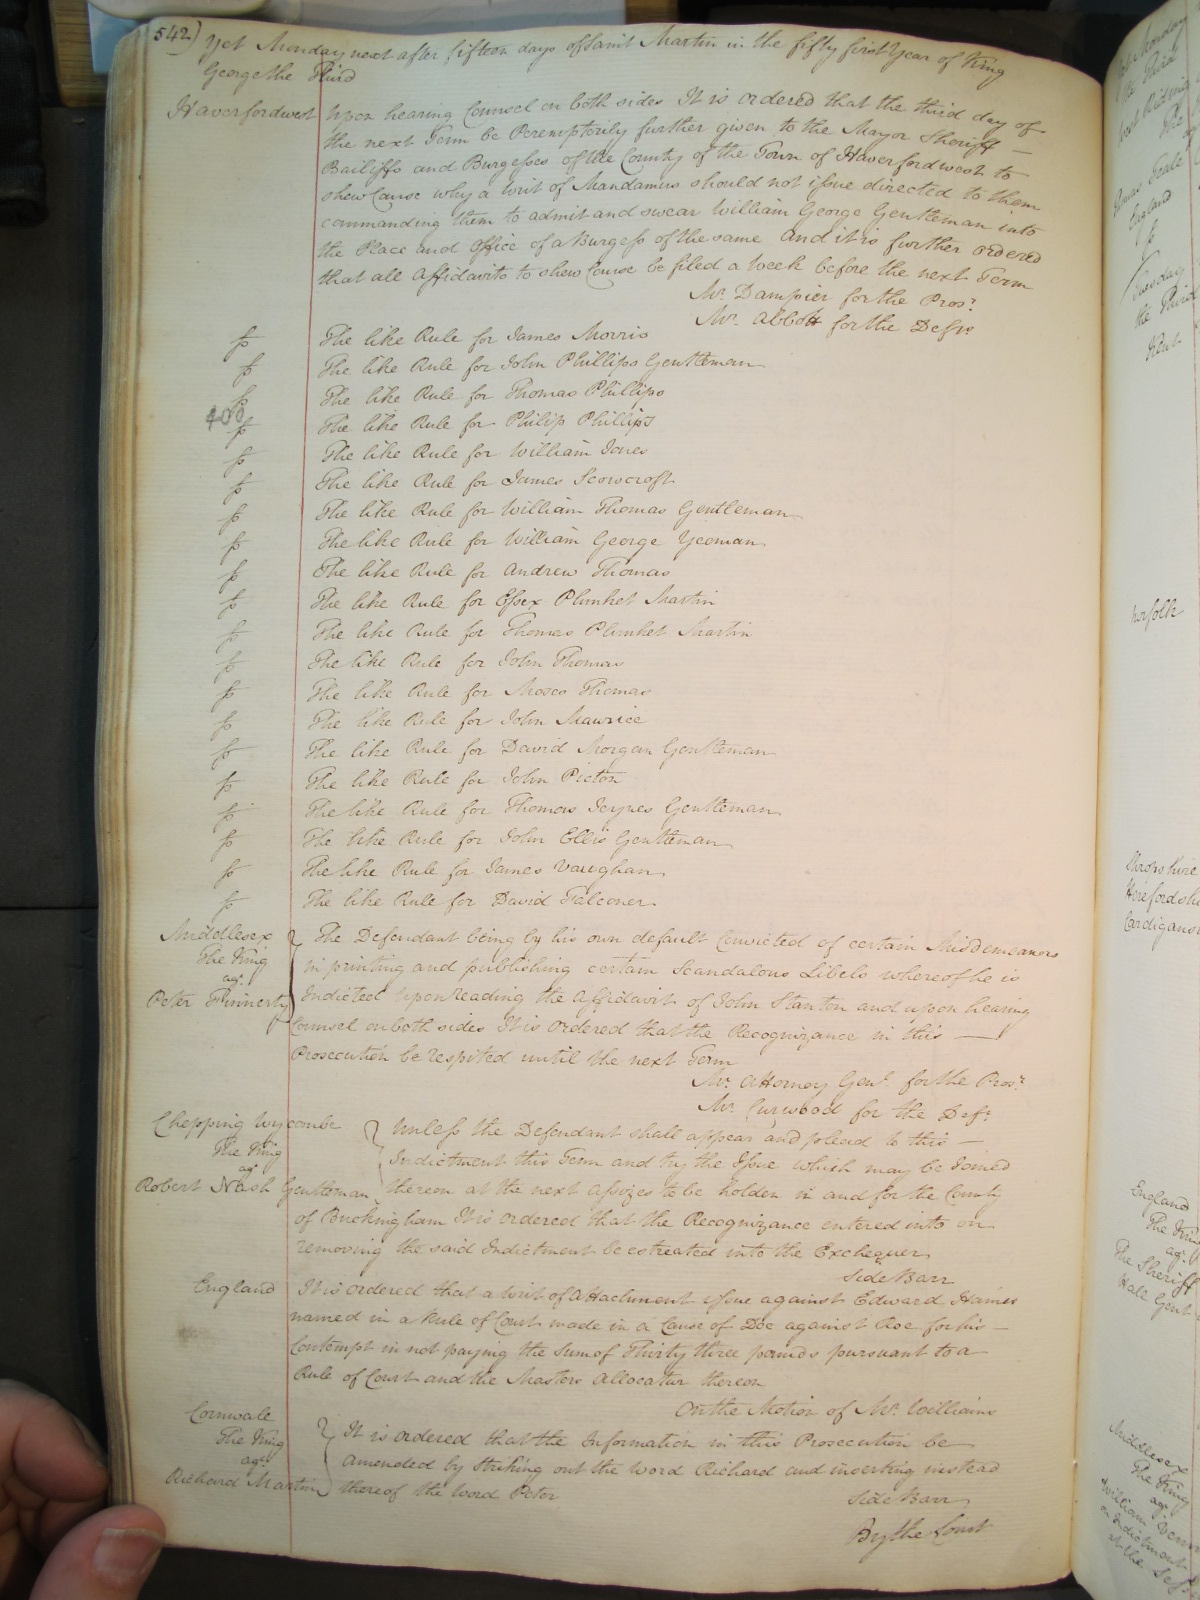 542)
Yet Monday next after fifteen days of Saint Martin in the fifty first Year of King
George the Third
Haverfordwest Upon hearing Counsel on both sides It is ordered that the third day of
the next Term be Peremptorily further given to the Mayor Sheriff —
Bailiffs and Burgesses of the County of the Town of Haverfordwest to
shew Cause why a writ of Mandamus should not issue directed to them
commanding them to admit and swear William George Gentleman into
the Place and Office of a Burgess of the same and it is further ordered
that all Affidavits to shew Cause be filed a week before the next Term
Mr. Dampier for the Prosr.
Mr. Abbott for the Defts
The like Rule for James Morris
The like Rule for John Phillips Gentleman
The like Rule for Thomas Phillips
400
The like Rule for Philip Phillips
The like Rule for William Jones
The like Rule for James Scowcroft
The like Rule for William Thomas Gentleman
The like Rule for William George Yeoman
The like Rule for Andrew Thomas
The like Rule for Essex Plunket Martin
The like Rule for Thomas Plunket Martin
The like Rule for John Thomas
The like Rule for Moses Thomas
The like Rule for John Maurice
The like Rule for David Morgan Gentleman
The like Rule for John Picton
The like Rule for Thomas Gentleman
The like Rule for John Ellis Gentleman
The like Rule for James Vaughan
The like Rule for David Falconer
Middlesex The Defendant being by his own default Convicted of certain Misdemeanors
The King in printing and publishing certain Scandalous Libels whereof he is
agt.
Peter Finnerty Indicted Upon reading the Affidavit of John Stanton and upon hearing
Counsel on both sides It is ordered that the Recognizance in this —
Prosecution be respited until the next Term
Mr. Attorney Genl. for the Prosr.
Mr. Curwood for the Deft.
Chepping Wycombe Unless the Defendant shall appear and plead to this —
The King Indictment this Term and try the Issue which may be Joined
agt
Robert Nash Gentleman thereon at the next Assizes to be holden in and for the County
of Buckingham It is ordered that the Recognizance entered into on
removing the said Indictment be estreated into the Exchequer
Side Barr
England It is ordered that a writ of Attachment issue against Edward Haines
named in a Rule of Court made in a Cause of Doe against Roe for his —
Contempt in not paying the sum of Thirty three pounds pursuant to a
Rule of Court and the Masters Allocatur thereon
On the Motion of Mr. Williams
Cornwale
The King It is ordered that the Information in this Prosecution be
agt. amended by striking out the word Richard and inserting instead
Richard Martin thereof the word Peter
Side Barr
By the Court
Norfolk
Shropshire
England